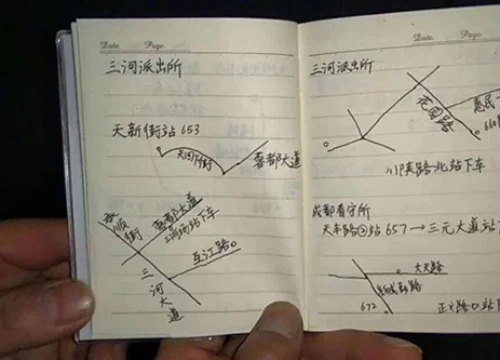 Date. Page.
三河派出所
天新街站 653
天回街
蓉都大道
顺街
蓉都大道
三河场站下车
互江路
三河大道
Date. Page.
三河派出所
花园路
惠民
川陕路北站下车
成都看守所
天丰路口站 657 → 三元大道站
天天路
672
正义路口站